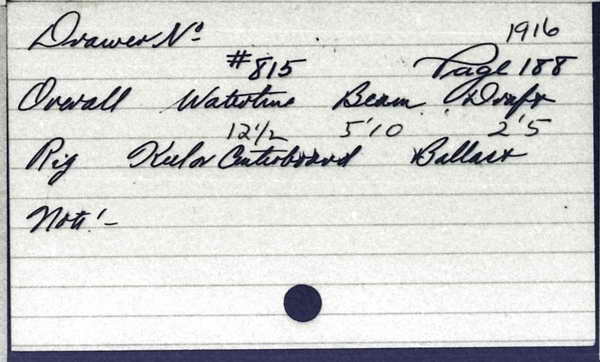 Drawer No. 1916
#815 Page 188
Overall Waterline Beam Draft
12 1/2 5'10 2'5
Rig Keel or Centerboard Ballast
Note:-